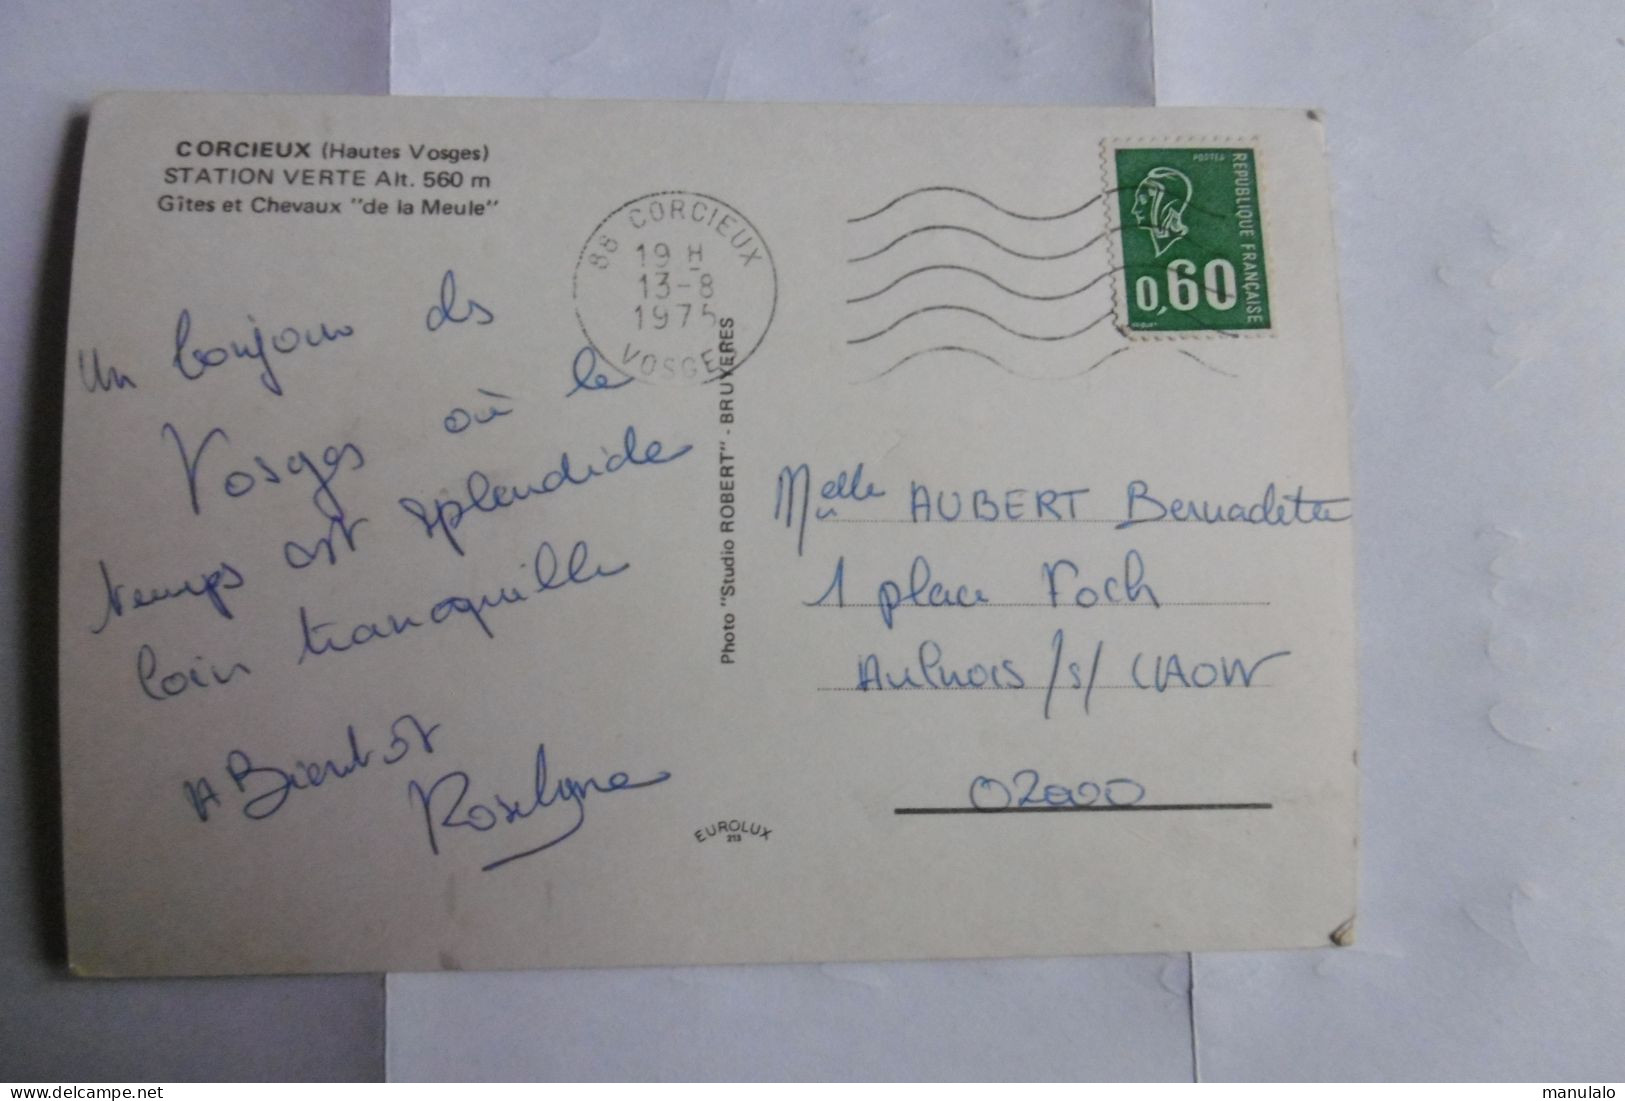 CORCIEUX (Hautes Vosges)
STATION VERTE Alt. 560 m
Gîtes et Chevaux "de la Meule"
88 CORCIEUX
19 H
13-8
1975
VOSGES
POSTES
REPUBLIQUE FRANÇAISE
0,60
Un bonjour des
Vosges où le
temps est splendide
loin tranquille
A Bientôt
Roselyne
Photo "Studio ROBERT" - BRUYERES
EUROLUX
213
Melle AUBERT Bernadette
1 place Foch
Aulnois /s/ LAON
02000
www.delcampe.net
manulalo